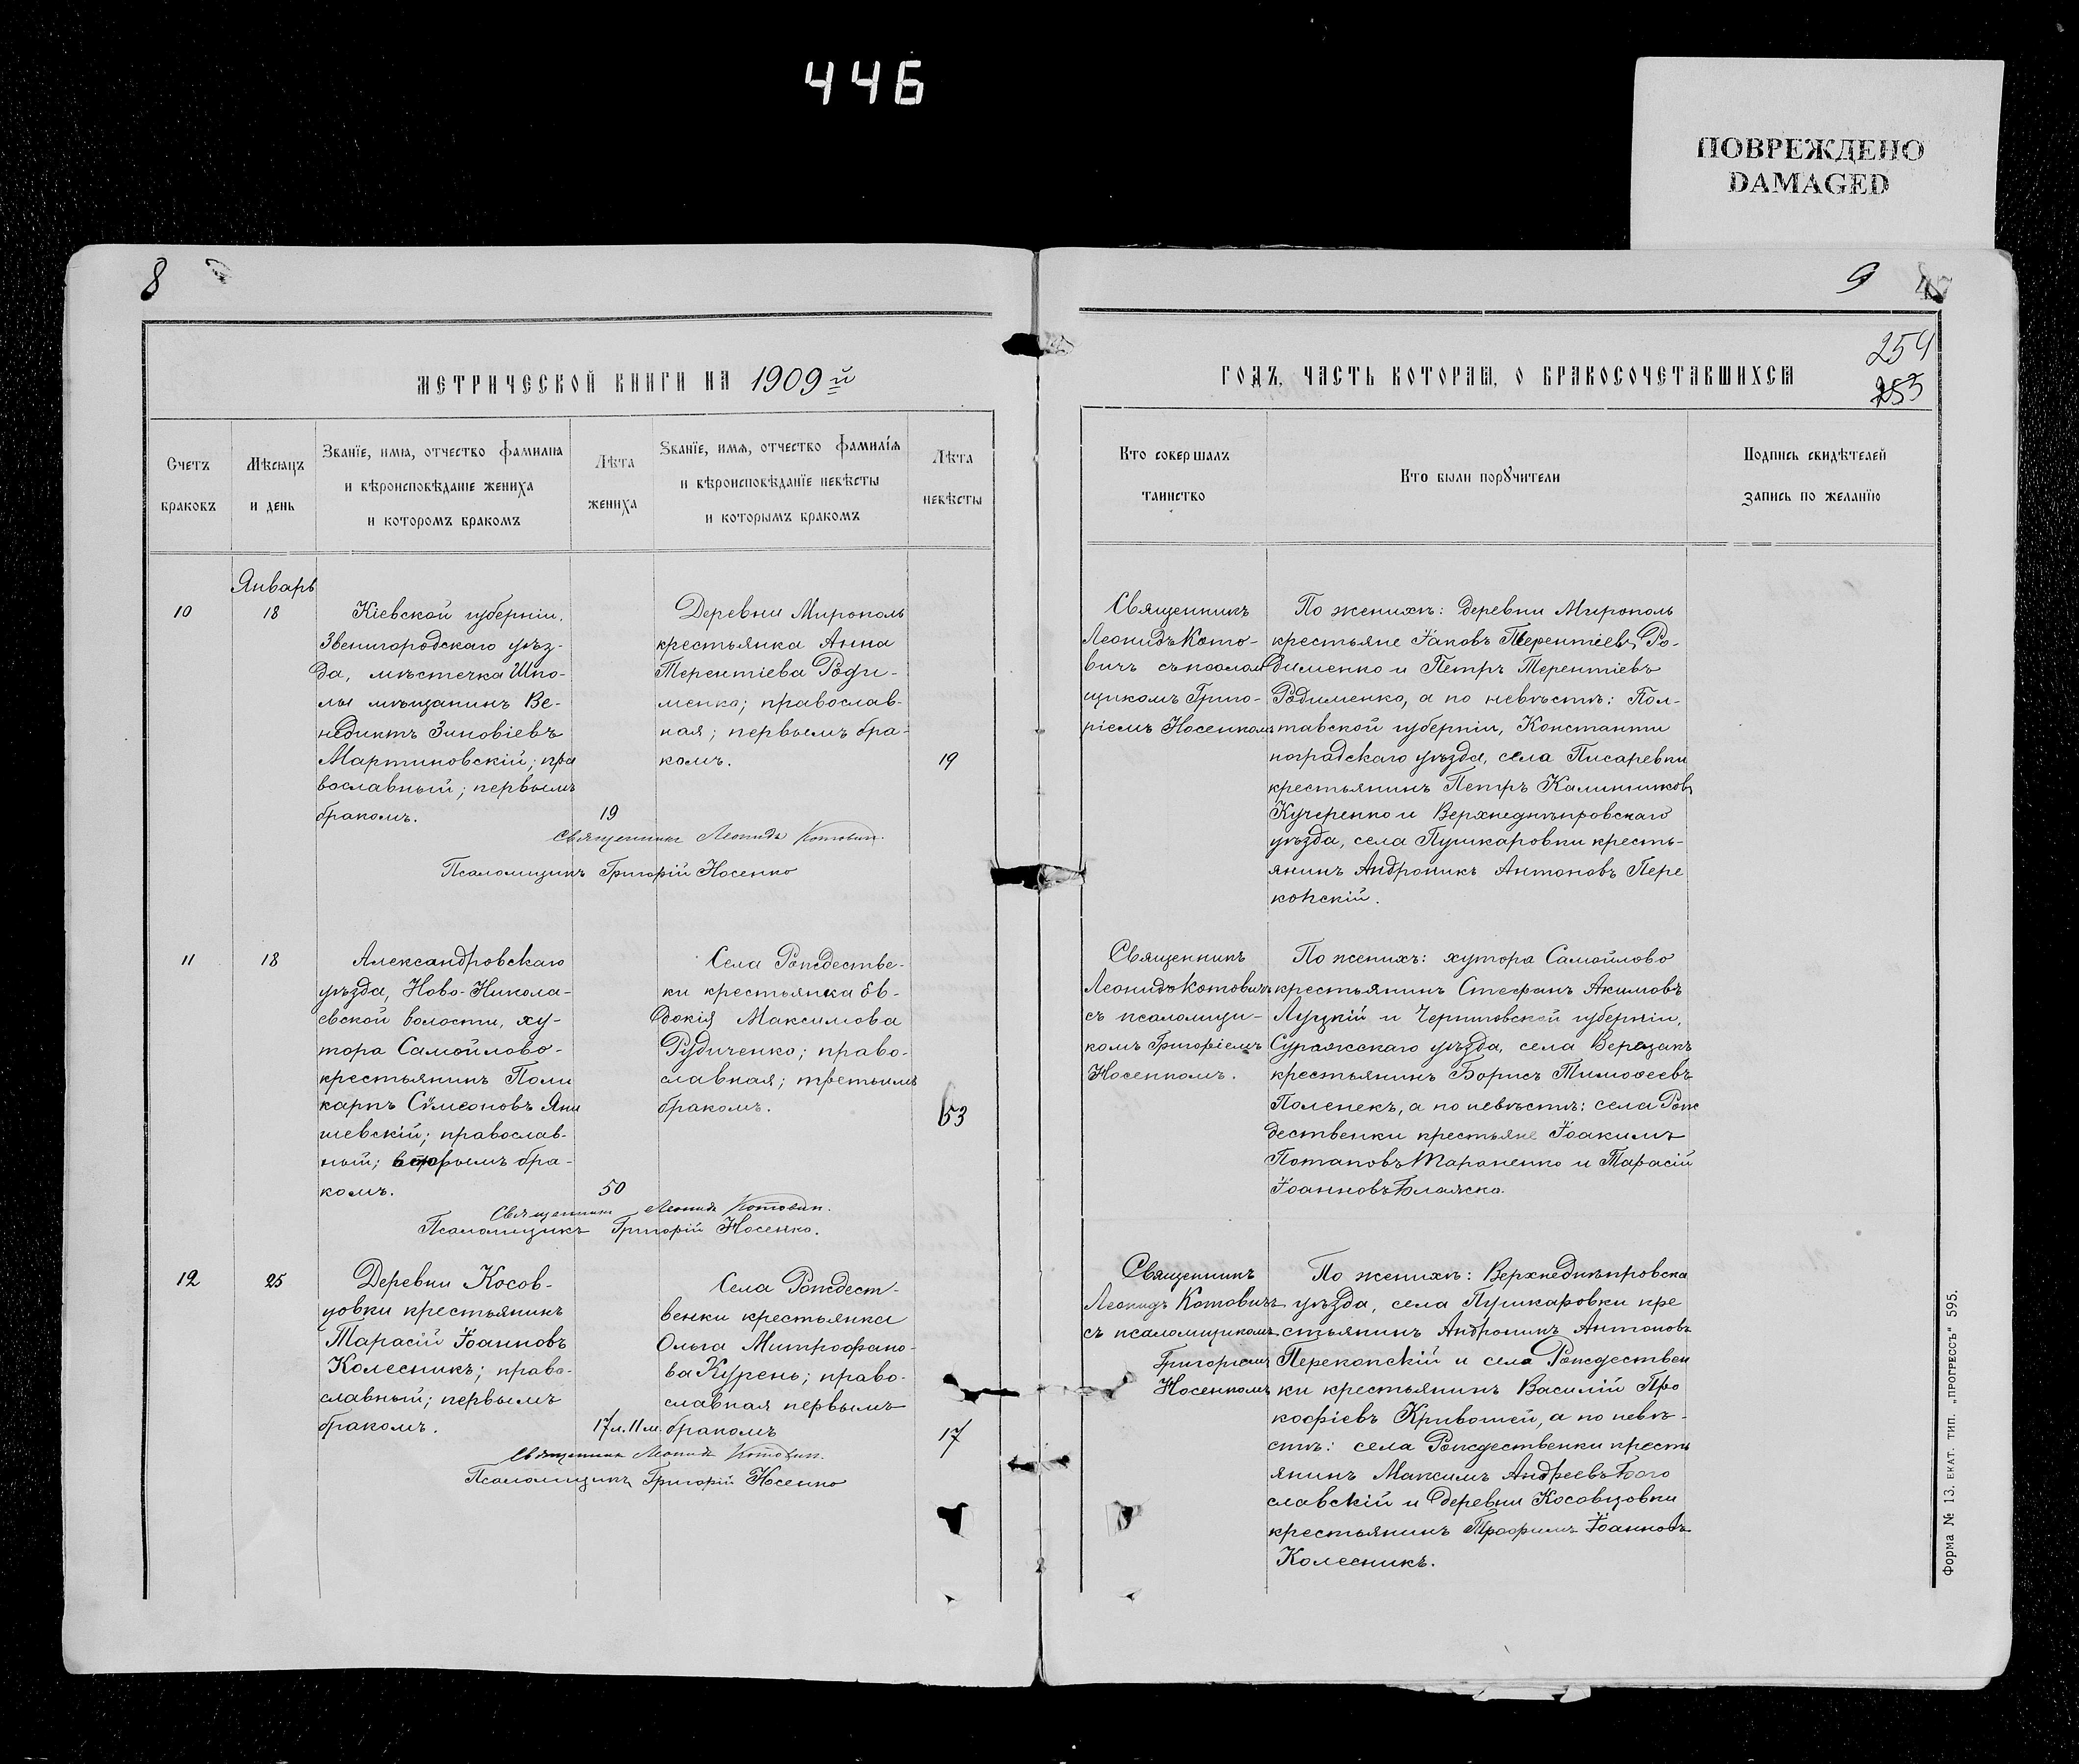 446
ПОВРЕЖДЕНО
DAMAGED
8
9
МЕТРИЧЕСКОЙ КНИГИ НА 1909 й
ГОДЪ, ЧАСТЬ ВТОРАЯ, О БРАКОСОЧЕТАВШИХСЯ
254
253
Счетъ
браковъ
Мѣсяцъ
и день
Званїе, имя, отчество фамилїя
и вѣроисповѣданїе жениха
и которымъ бракомъ
Лѣта
жениха
Званїе, имя, отчество фамилїя
и вѣроисповѣданїе невѣсты
и которымъ бракомъ
Лѣта
невѣсты
Кто совершалъ
таинство
Кто были порꙋчители
Подпись свидѣтелей
запись по желанїю
Январь
10
18
Кіевской губерніи,
Звенигородскаго уѣз-
да, мѣстечка Шпо-
лы мѣщанинъ Ве-
недиктъ Зиновіевъ
Мартиновскій; пра
вославный; первымъ
бракомъ.
19
Деревни Мирополь
крестьянка Анна
Терентіева Роди-
менко; православ-
ная; первымъ бра-
комъ.
19
Священникъ Леонидъ Котович.
Псаломщикъ Григорій Носенко
Священникъ
Леонидъ Кото-
вичъ съ псалом
щикомъ Григо-
ріемъ Носенкомъ
По женихѣ: деревни Мирополь
крестьяне Іаковъ Терентіевъ Ро-
дименко и Петръ Терентіевъ
Родименко, а по невѣстѣ: Пол-
тавской губерніи, Константи
ноградскаго уѣзда, села Писаревки
крестьянинъ Петръ Калинниковъ
Кучеренко и Верхнеднѣпровскаго
уѣзда, села Пушкаровки кресть-
янинъ Андроникъ Антоновъ Пере
копскій.
11
18
Александровскаго
уѣзда, Ново-Никола-
евской волости, ху-
тора Самойлово-
крестьянинъ Поли
карпъ Сѵмеоновъ Яни
шевскій; православ-
ный; вторымъ бра-
комъ.
50
Села Рождестве-
ки крестьянка Ев-
докія Максимова
Рудиченко; право-
славная; третьимъ
бракомъ.
53
Священникъ Леонидъ Котович.
Псаломщикъ Григорій Носенко.
Священникъ
Леонидъ Котовичъ
съ псаломщи-
комъ Григоріемъ
Носенкомъ.
По женихѣ: хутора Самойлово
крестьянинъ Стефанъ Акимовъ
Луцкій и Черниговской губерніи,
Суражскаго уѣзда, села Верещакъ
крестьянинъ Борисъ Тимоѳеевъ
Поленекъ, а по невѣстѣ: села Рож
дественки крестьяне Іоакимъ
Потаповъ Тараненко и Тарасій
Іоанновъ
12
25
Деревни Косов-
цовки крестьянинъ
Тарасій Іоанновъ
Колесникъ; право-
славный; первымъ
бракомъ.
17 л. 11 м.
Села Рождест-
венки крестьянка
Ольга Митрофано-
ва Курень; право-
славная первымъ
бракомъ
17
Священникъ Леонидъ Котович.
Псаломщикъ Григорій Носенко
Священникъ
Леонидъ Котовичъ
съ псаломщикомъ
Григоріемъ
Носенкомъ
По женихѣ: Верхнеднѣпровска
уѣзда, села Пушкаровки кре
стьянинъ Андроникъ Антоновъ
Перекопскій и села Рождествен
ки крестьянинъ Василій Про
кофіевъ Кривошей, а по невѣ-
стѣ: села Рождественки кресть
янинъ Максимъ Андреевъ Бого
славскій и деревни Косовцовки
крестьянинъ Трофимъ Іоанновъ
Колесникъ.
Форма № 13. ЕКАТ. ТИП. „ПРОГРЕССЪ" 595.